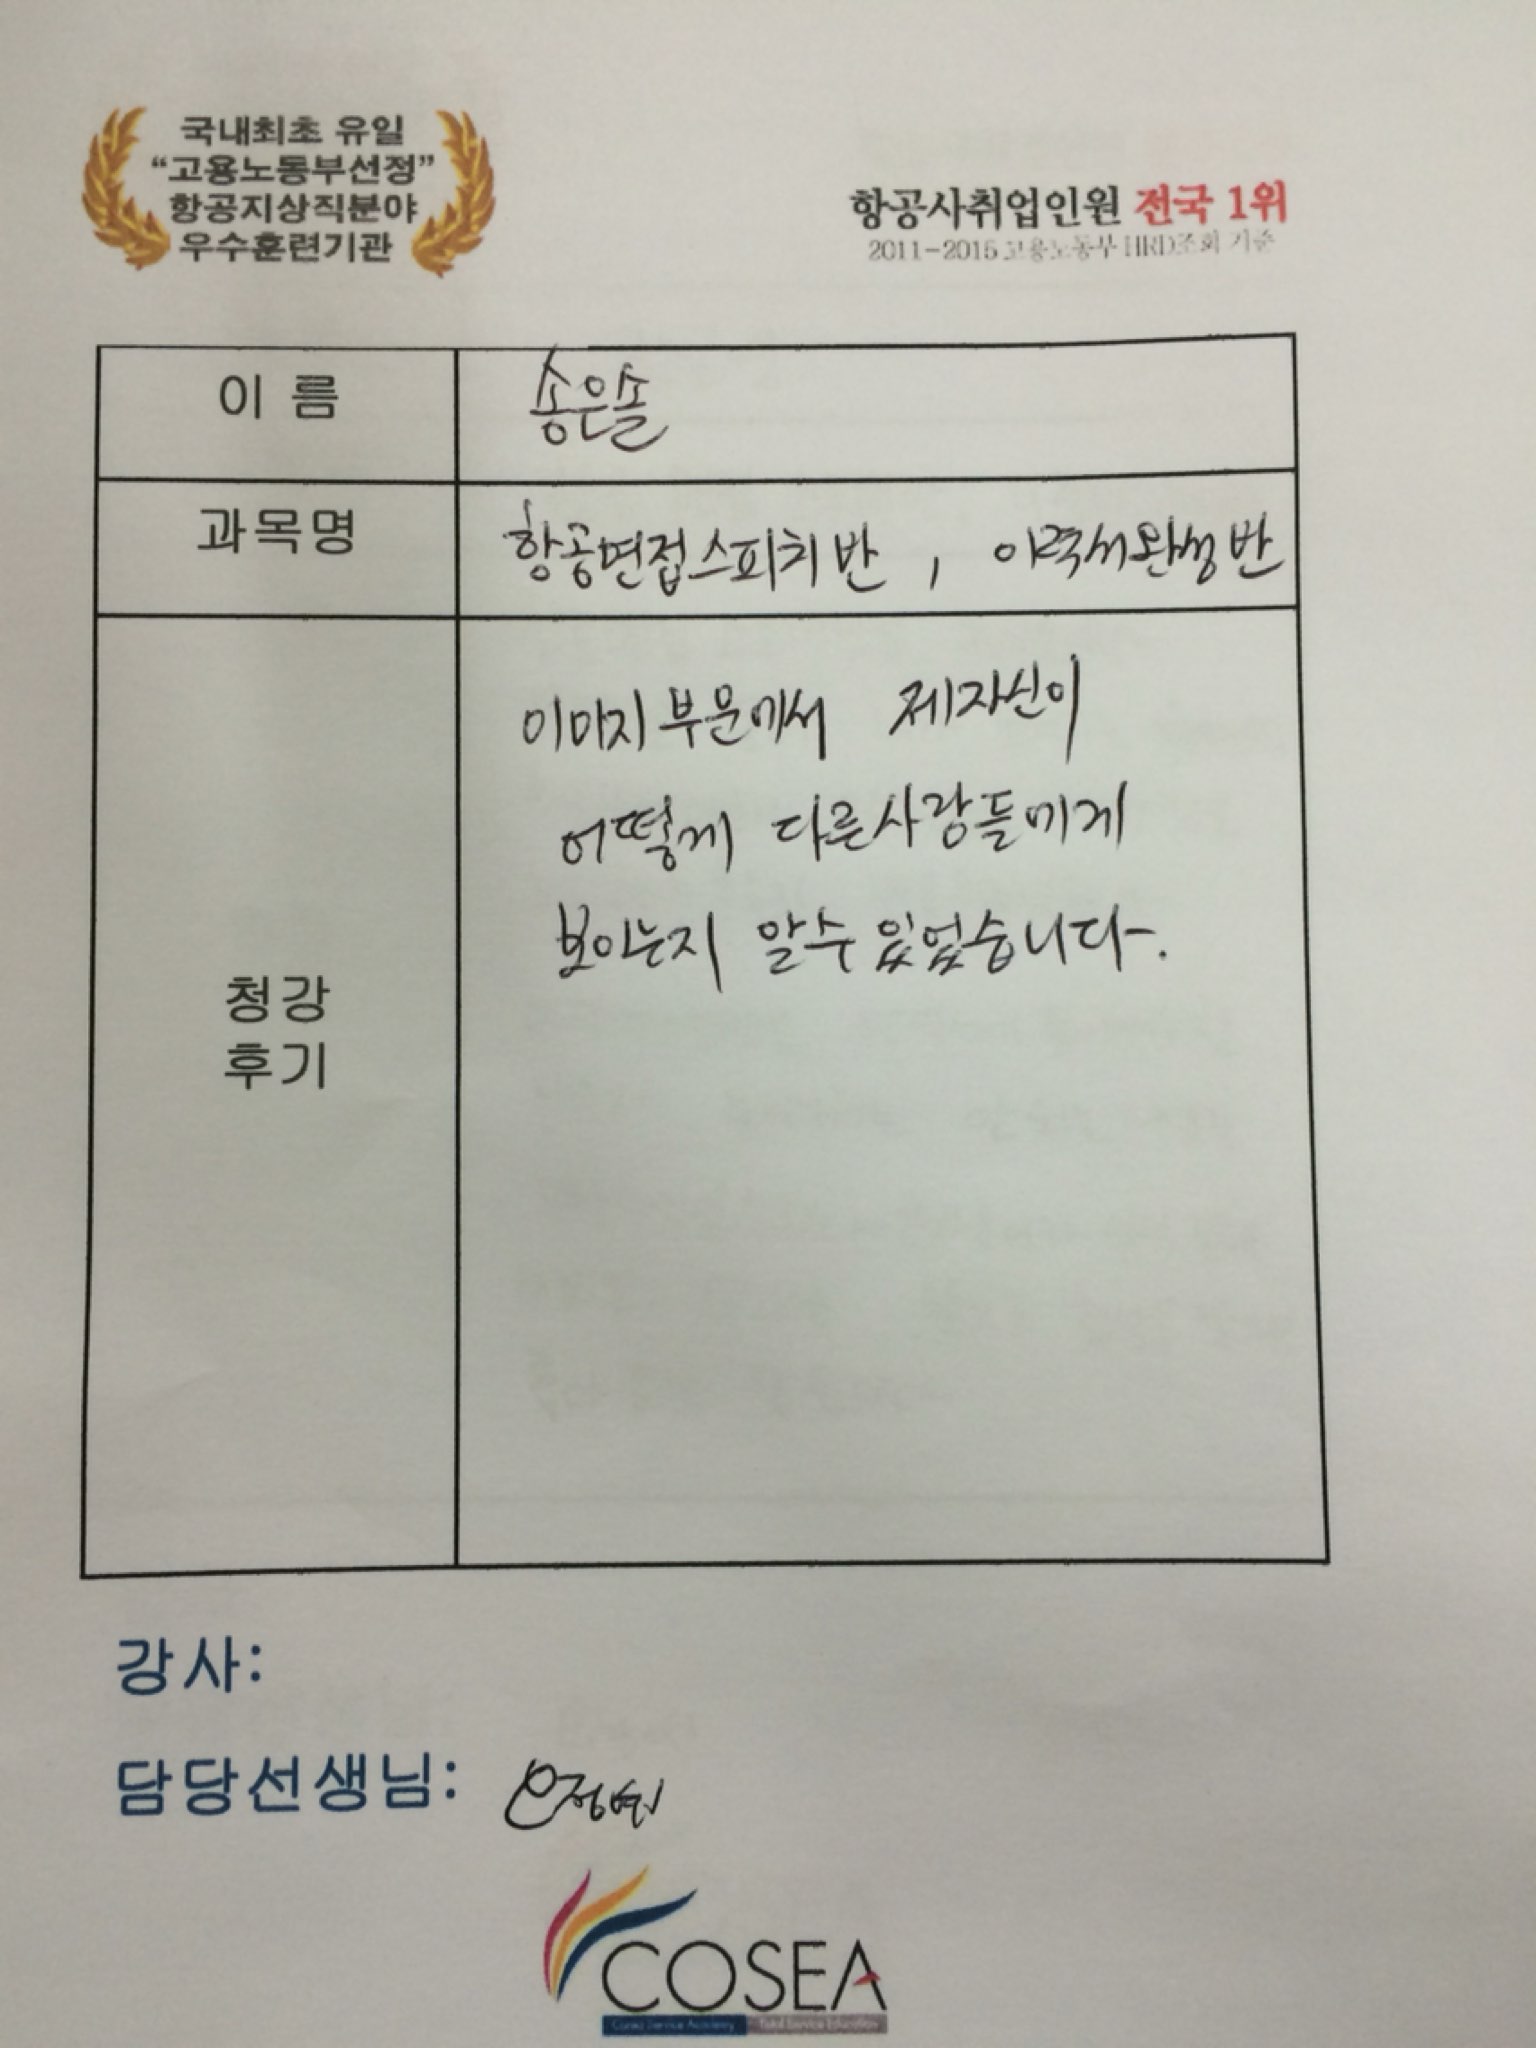 국내최초 유일
“고용노동부선정”
항공지상직분야
우수훈련기관
항공사취업인원 전국 1위
2011-2015 고용노동부 HRD조회 기준
이 름
송은솔
과목명
항공면접스피치반 , 이력서완성반
청강
후기
이미지 부문에서 제자신이
어떻게 다른사람들에게
보이는지 알수 있었습니다.
강사:
담당선생님:
COSEA
Cosea Service Academy Total Service Education